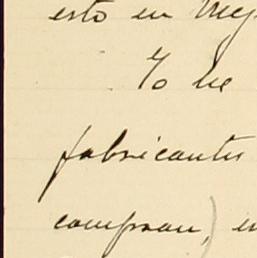 esto en
Yo he
fabricantes
compran,) en